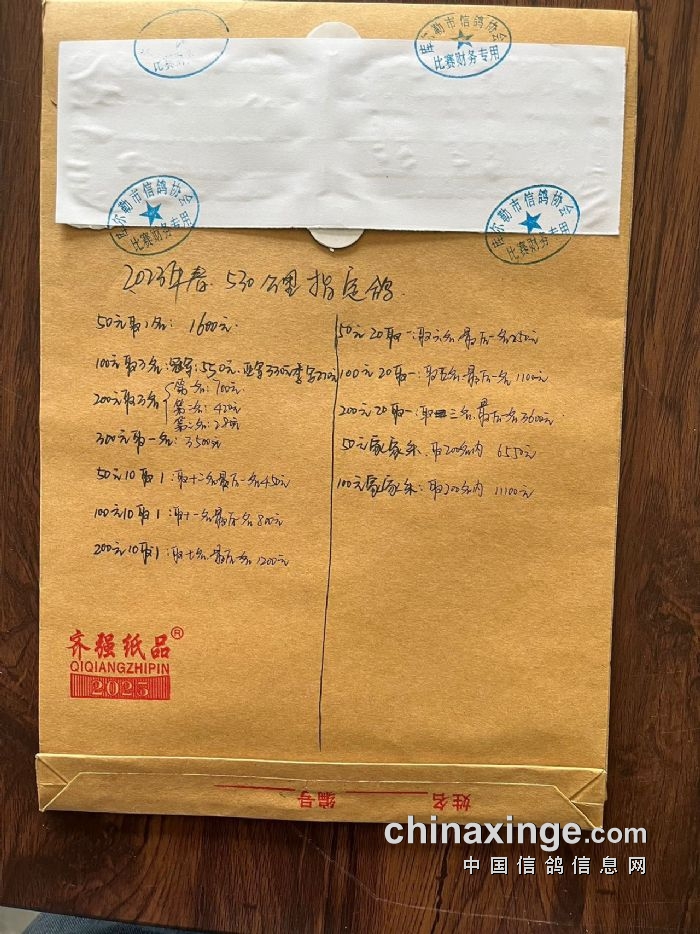 比赛财务专用
库尔勒市信鸽协会
比赛财务专用
库尔勒市信鸽协会
比赛财务专用
库尔勒市信鸽协会
比赛财务专用
2023年春 530公里指定鸽
50元取 名: 1600元
100元取3名: 冠军: 550元, 亚军330元季军220元
200元取3名
第一名: 700元
第二名: 420元
第三名: 280元
300元取一名: 3500元
50元10取1: 取十二名最后一名450元
100元10取1: 取十一名最后一名800元
200元10取1: 取七名最后一名1200元
50元20取一: 取六名最后一名250元
100元20取一: 取五名最后一名1100元
200元20取一: 取三名最后一名3600元
50元家家乐, 取200名内 6550元
100元家家乐: 取200名内 11100元
齐强纸品®
QIQIANGZHIPIN
2025
姓名 编号
chinaxinge.com
中国信鸽信息网